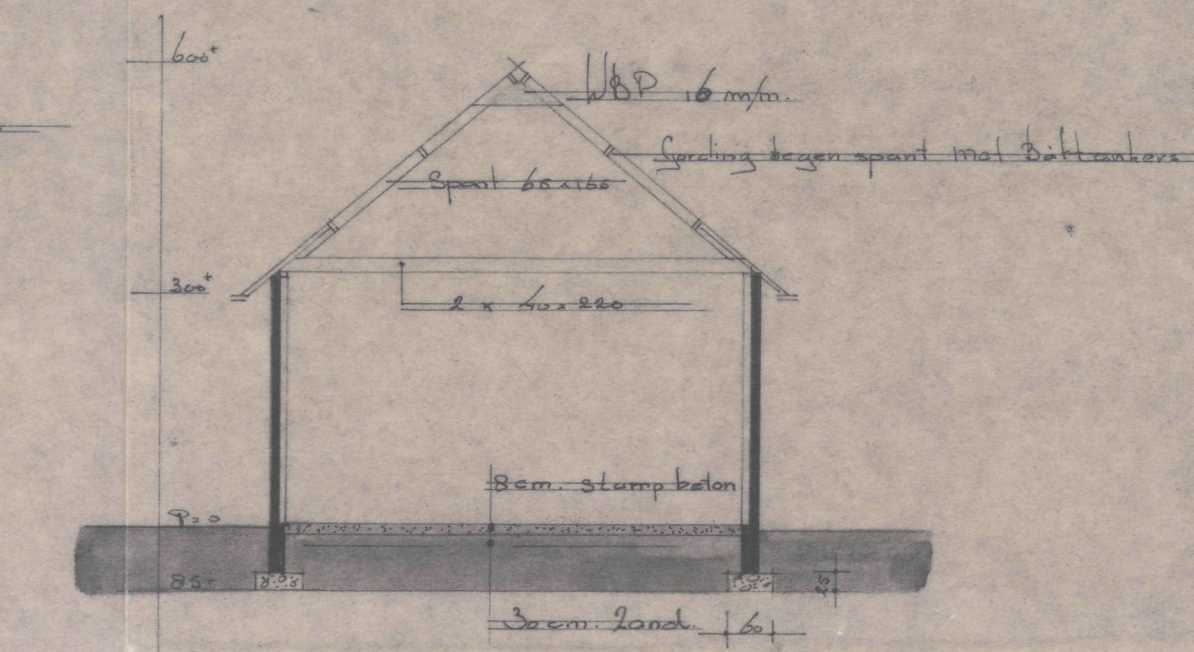 600+
WBP 16 m/m.
Gording tegen spant met Bátankers
Spant 65x165
300+
2 x 40 x 220
8cm. stamp beton
P=0
85-
25
30cm. Zand.
60